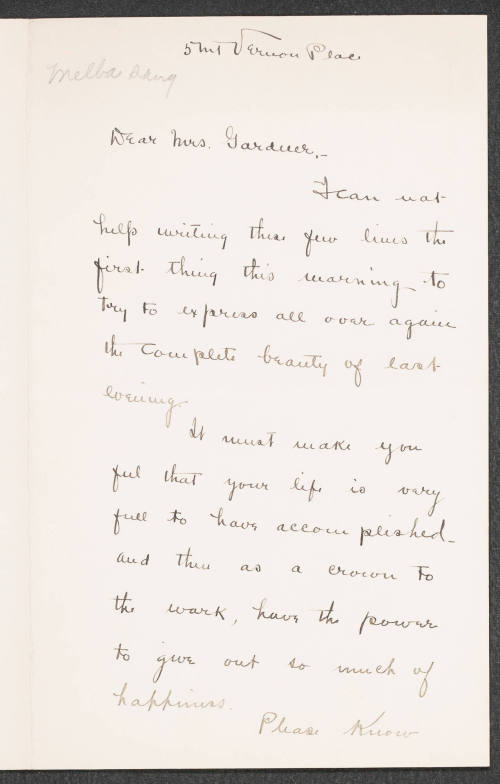 5 Mt Vernon Place
Melba sang
Dear Mrs. Gardner,-
I can not
help writing these few lines the
first thing this morning to
try to express all over again
the complete beauty of last
evening.
It must make you
feel that your life is very
full to have accomplished-
and then as a crown to
the work, have the power
to give out so much of
happiness.
Please know